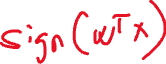 sign(wᵀx)